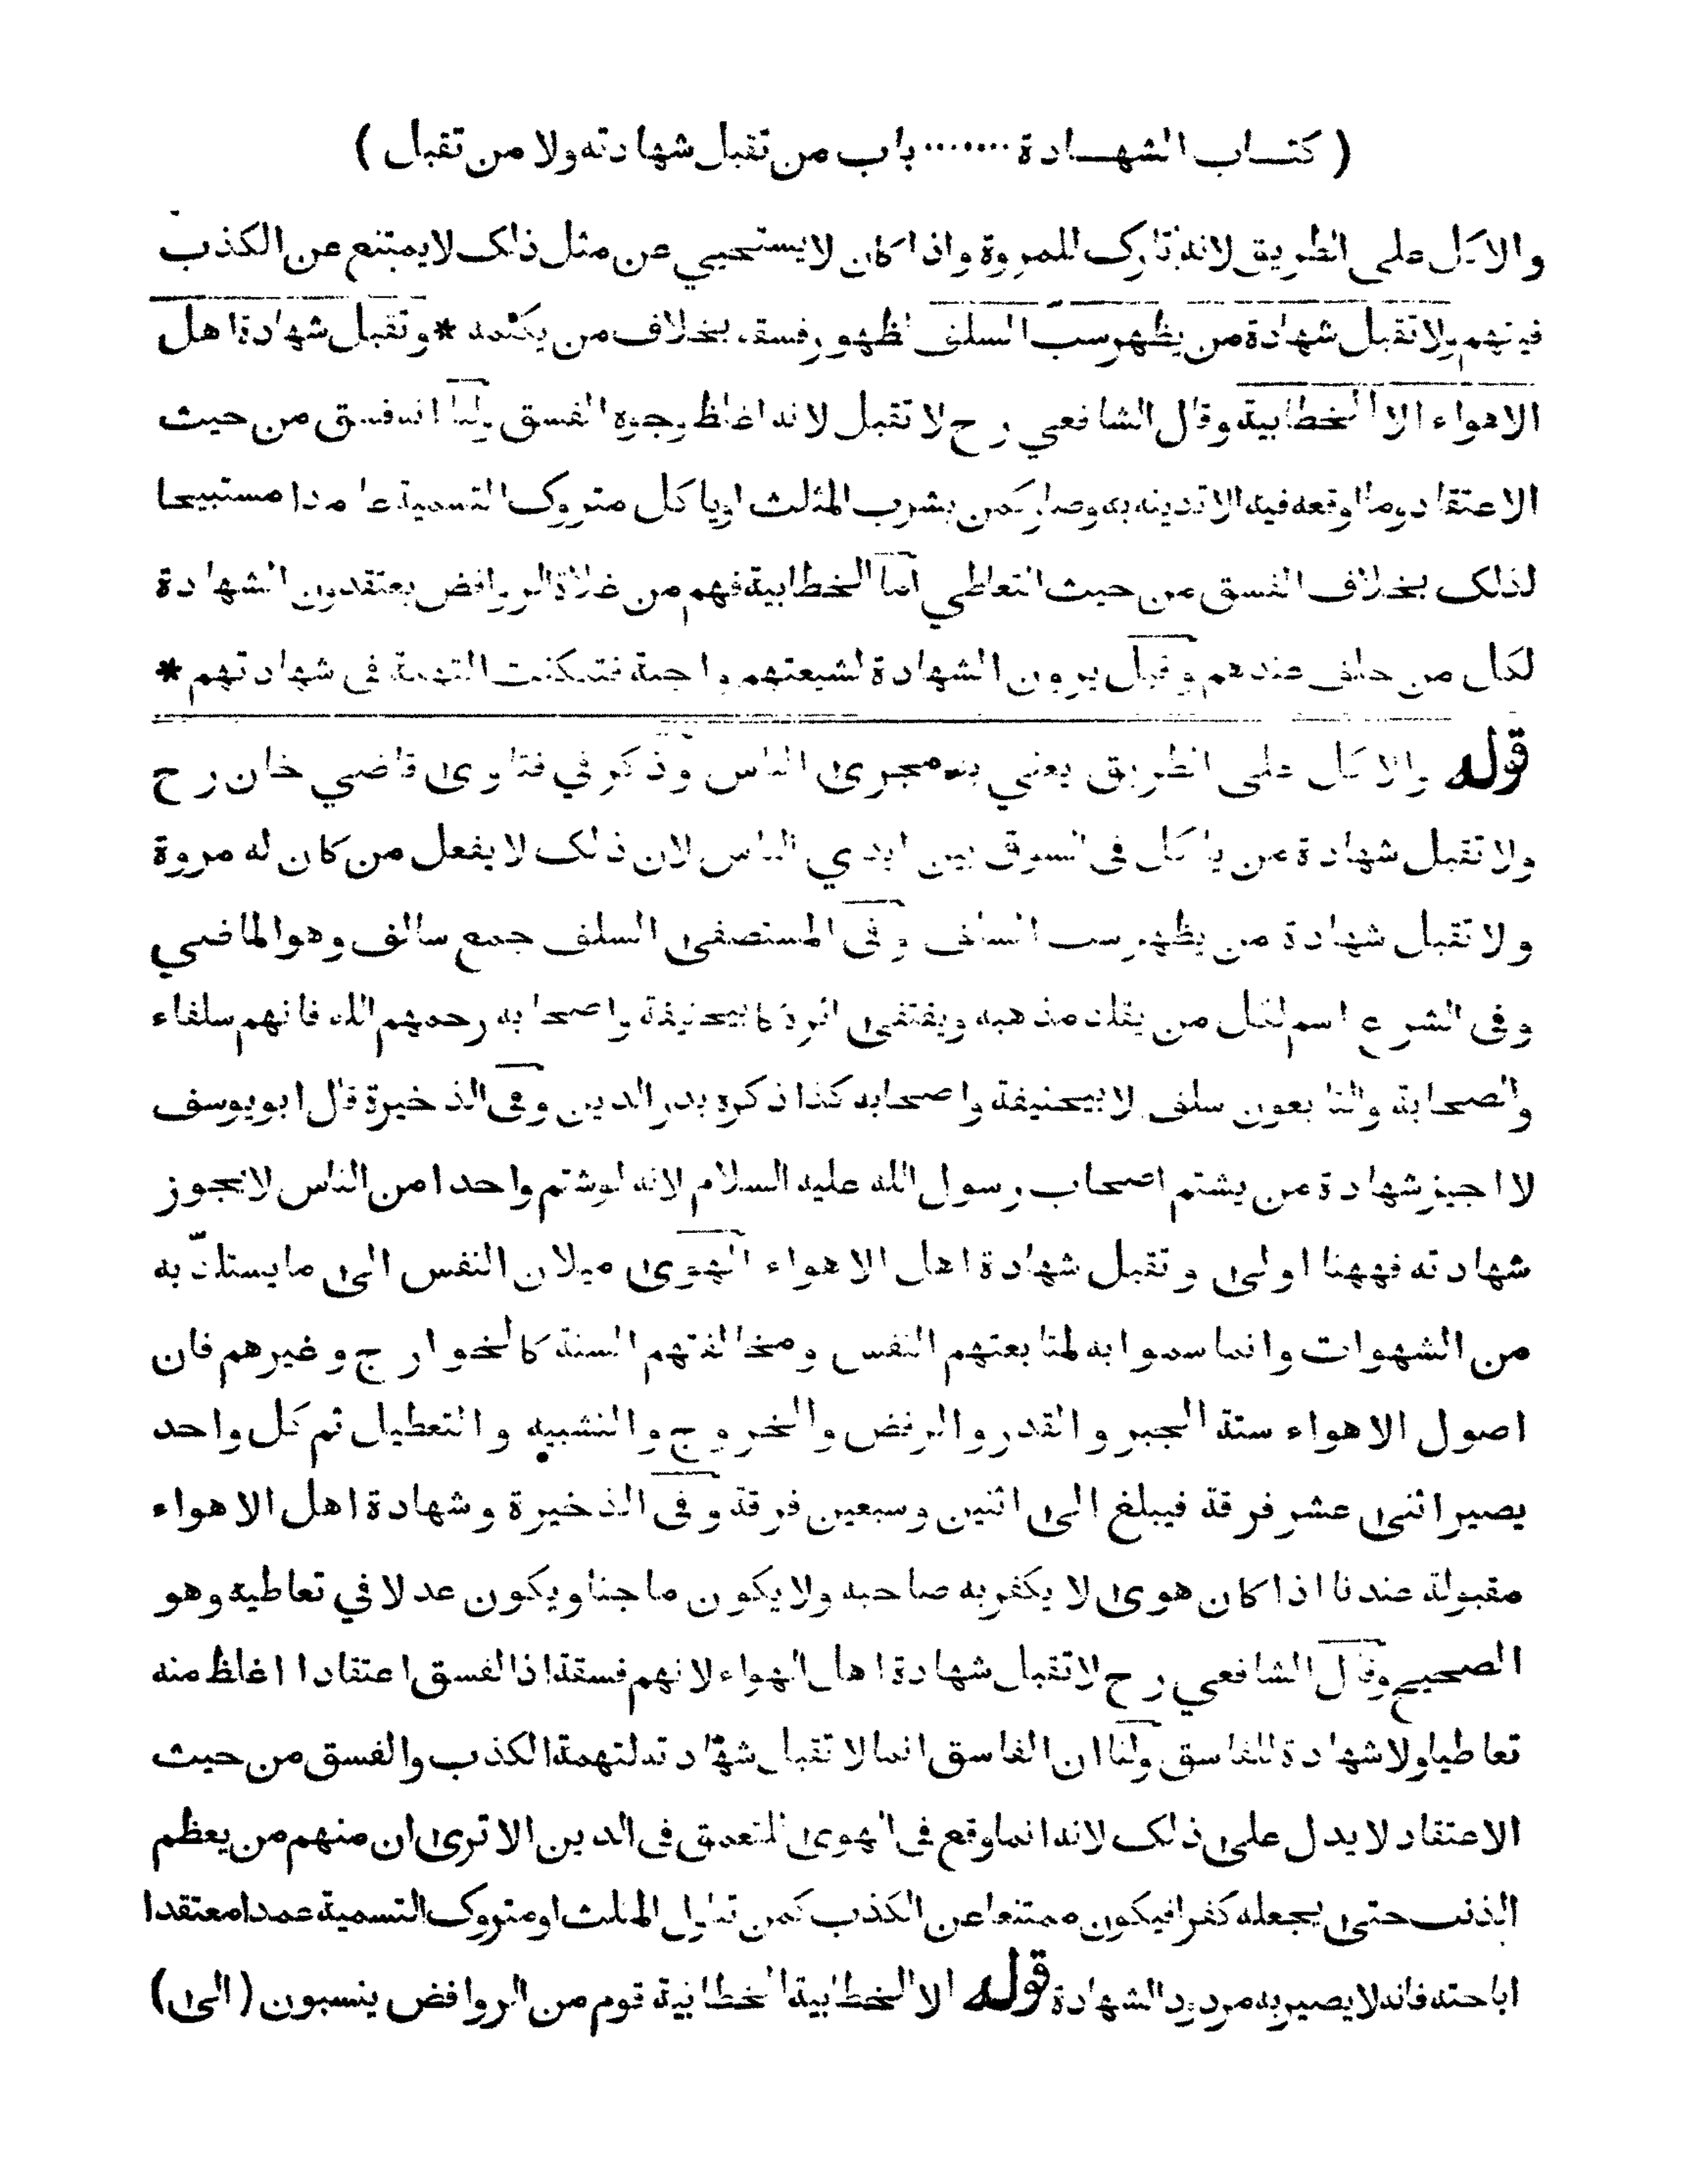 ( كتاب الشهادة ....... باب من تقبل شهادته ولا من تقبل )
والاكل على الطريق لانه تارك للمروة واذا كان لا يستحيي عن مثل ذلك لا يمتنع عن الكذب
فيتهم ولا تقبل شهادة من يظهر سب السلف لظهور فسقه بخلاف من يكتمه * وتقبل شهادة اهل
الاهواء الا الخطابية وقال الشافعي رح لا تقبل لانه اغلظ وجوه الفسق ولنا انه فسق من حيث
الاعتقاد وما اوقعه فيه الا تدينه به وصار كمن يشرب المثلث او ياكل متروك التسمية عامدا مستبيحا
لذلك بخلاف الفسق من حيث التعاطي اما الخطابية فهم من غلاة الروافض يعتقدون الشهادة
لكل من حلف عندهم وقيل يرون الشهادة لشيعتهم واجبة فتمكنت التهمة فى شهادتهم *
قوله والاكل على الطريق يعني به مجرى الناس وذكر في فتاوى قاضي خان رح
ولا تقبل شهادة من ياكل فى السوق بين ايدي الناس لان ذلك لا يفعل من كان له مروة
ولا تقبل شهادة من يظهر سب السلف وفى المستصفى السلف جمع سالف وهو الماضي
وفى الشرع اسم لكل من يقلد مذهبه ويقتفى اثره كابيحنيفة واصحابه رحمهم الله فانهم سلفاء
والصحابة والتابعون سلف لابيحنيفة واصحابه كذا ذكره بدر الدين وفى الذخيرة قال ابو يوسف
لا اجيز شهادة من يشتم اصحاب رسول الله عليه السلام لانه لو شتم واحدا من الناس لا تجوز
شهادته فههنا اولى وتقبل شهادة اهل الاهواء الهوى ميلان النفس الى ما يستلذ به
من الشهوات وانما سموا به لمتابعتهم النفس ومخالفتهم السنة كالخوارج وغيرهم فان
اصول الاهواء ستة الجبر والقدر والرفض والخروج والتشبيه والتعطيل ثم كل واحد
يصير اثنى عشر فرقة فيبلغ الى اثنين وسبعين فرقة وفى الذخيرة وشهادة اهل الاهواء
مقبولة عندنا اذا كان هوى لا يكفر به صاحبه ولا يكون ماجنا ويكون عدلا في تعاطيه وهو
الصحيح وقال الشافعي رح لا تقبل شهادة اهل الهواء لانهم فسقة اذ الفسق اعتقادا اغلظ منه
تعاطيا ولا شهادة للفاسق ولنا ان الفاسق انما لا تقبل شهادته لتهمة الكذب والفسق من حيث
الاعتقاد لا يدل على ذلك لانه انما وقع فى الهوى للتعمق فى الدين الا ترى ان منهم من يعظم
الذنب حتى يجعله كفرا فيكون ممتنعا عن الكذب كمن تناول المثلث او متروك التسمية عمدا معتقدا
اباحته فانه لا يصير به مردود الشهادة قوله الا الخطابية الخطابية قوم من الروافض ينسبون ( الى )